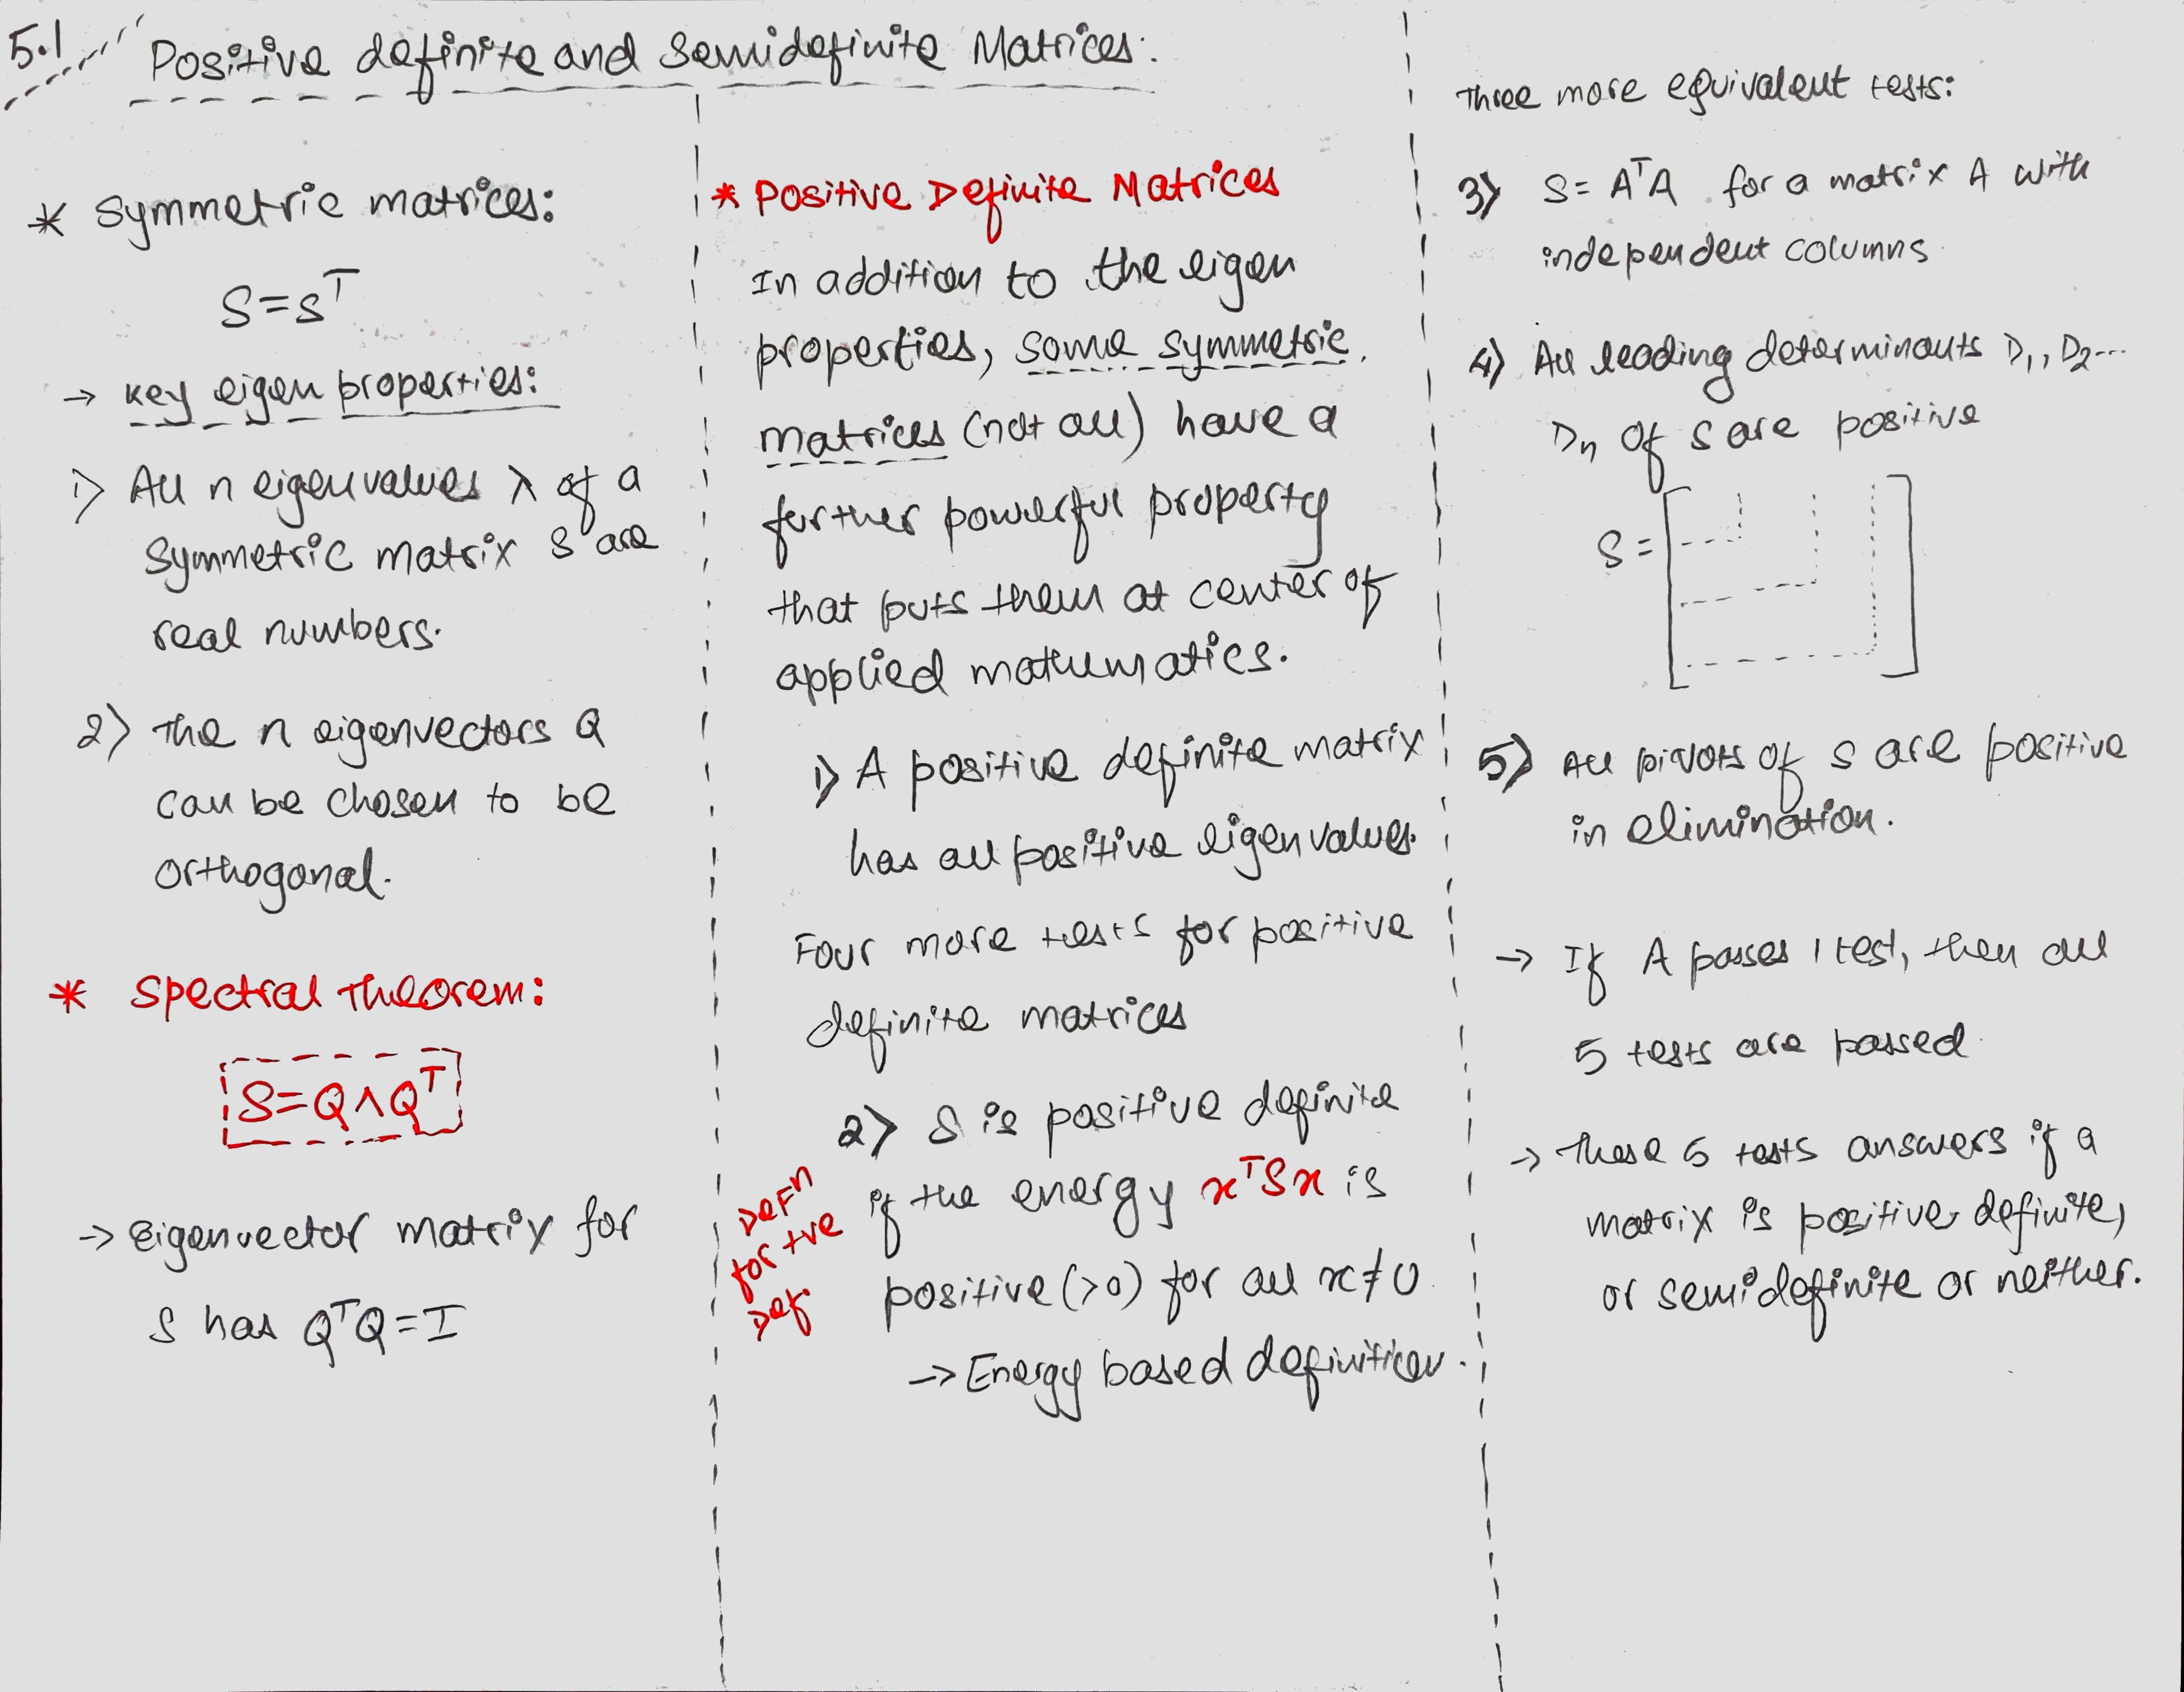 5.1 Positive definite and Semidefinite Matrices:
* Symmetric matrices:
S=S^T
→ Key eigen properties:
1) All n eigenvalues λ of a
Symmetric matrix S are
real numbers.
2) The n eigenvectors Q
can be chosen to be
orthogonal.
* Spectral Theorem:
S=QΛQ^T
→ Eigenvector matrix for
S has Q^TQ=I
* Positive Definite Matrices
In addition to the eigen
properties, some symmetric
matrices (not all) have a
further powerful property
that puts them at center of
applied mathematics.
1) A positive definite matrix
has all positive eigenvalues.
Four more tests for positive
definite matrices
2) S is positive definite
if the energy x^TSx is
positive (>0) for all x≠0
→ Energy based definition.
Def^n
for +ve
Def.
Three more equivalent tests:
3) S= A^TA for a matrix A with
independent columns
4) All leading determinants D1, D2...
Dn of S are positive
S=
5) All pivots of S are positive
in elimination.
→ If A passes 1 test, then all
5 tests are passed
→ These 5 tests answers if a
matrix is positive definite,
or semidefinite or neither.